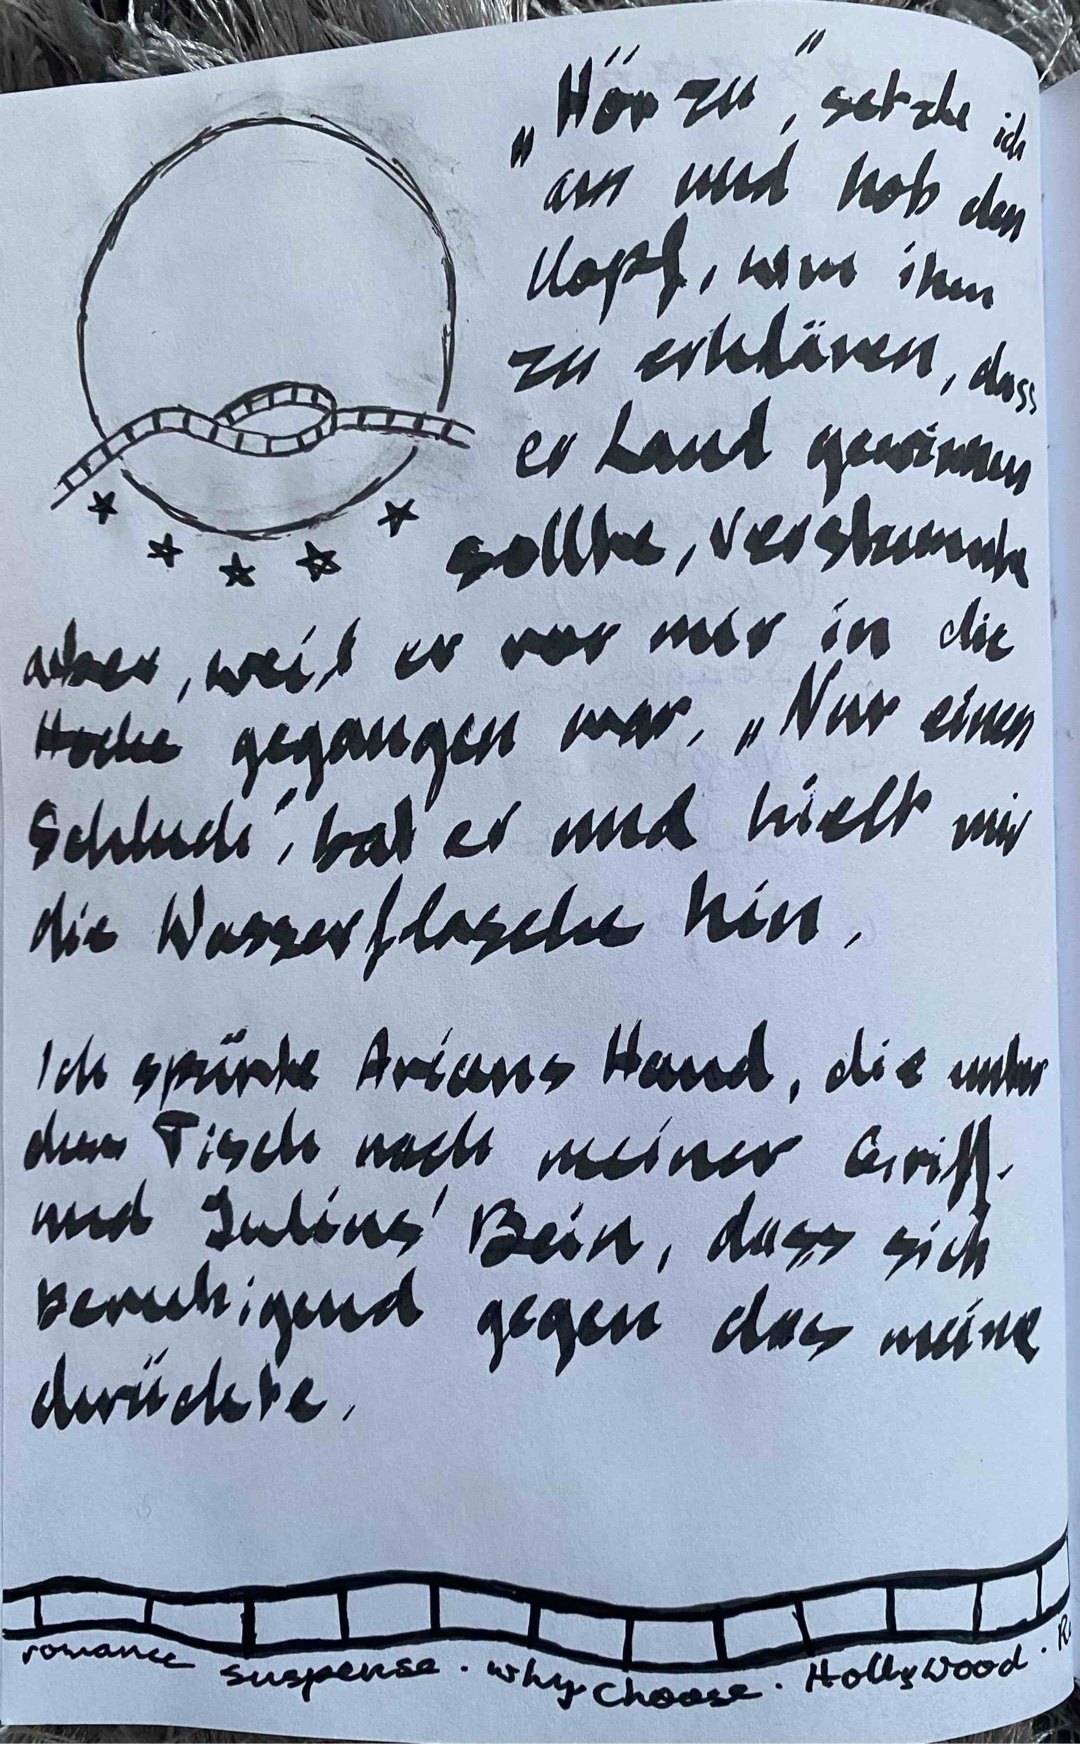 „Hör zu“, setzte ich
an und hob den
Kopf, um ihm
zu erklären, dass
er Land gewinnen
sollte, verstummte
aber, weil er vor mir in die
Hocke gegangen war. „Nur einen
Schluck“, bat er und hielt mir
die Wasserflasche hin.
Ich spürte Arians Hand, die unter
dem Tisch nach meiner Griff.
und Julius' Bein, dass sich
beruhigend gegen das meine
drückte.
romance suspense · why choose · Hollywood · R